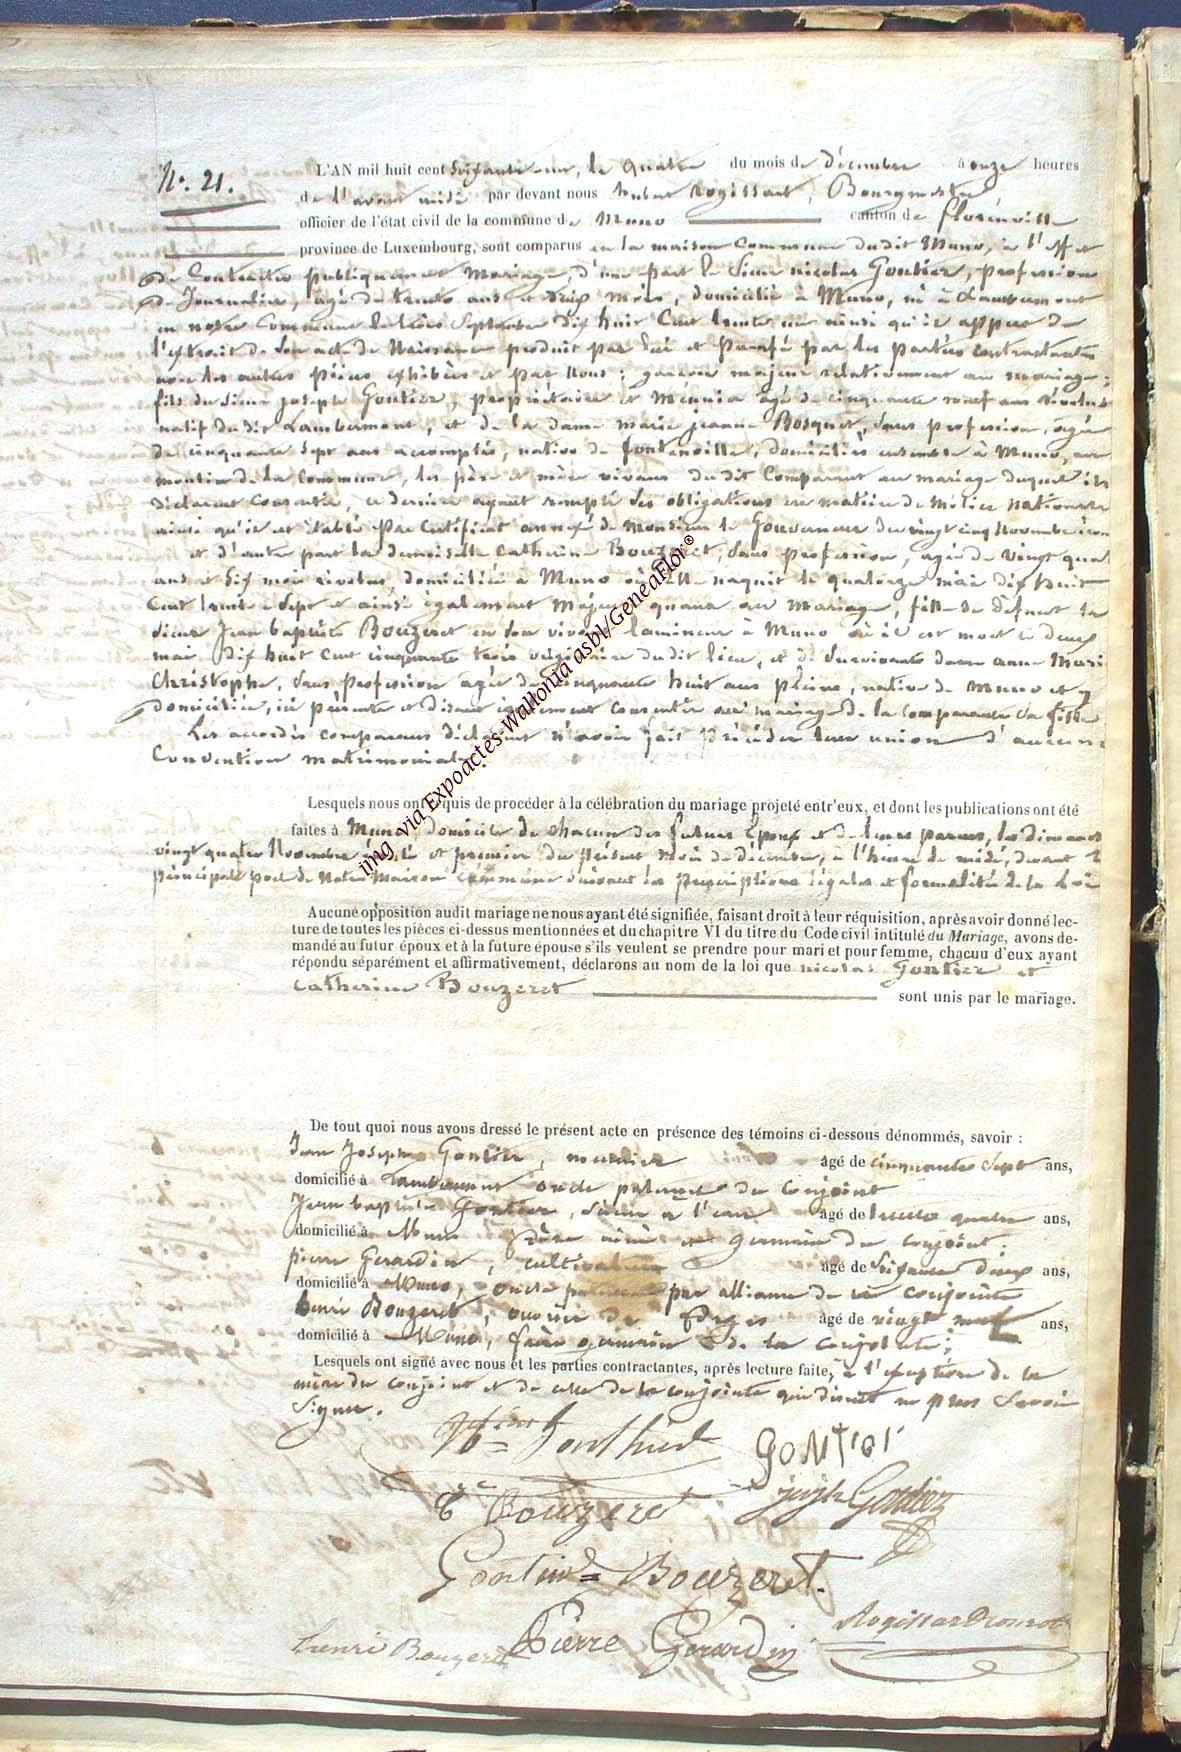 N°. 21.
L'AN mil huit cent soixante un, le quatre du mois de décembre à onze heures
de l'avant midi par devant nous hubert Rogissart, Bourgmestre
officier de l'état civil de la commune de Muno canton de florenville
province de Luxembourg, sont comparus en la maison Commune dudit Muno, à l'effet
de Contracter publiquement Mariage, d'une part le Sieur nicolas Gontier, profession
de Journalier, agé de trente ans et trois mois, domicilié à Muno, né à Lambermont
en notre Commune le trois Septembre dix huit Cent trente un ainsi qu'il appert de
l'extrait de son acte de Naissance produit par lui et paraphé par les parties contractantes
les autres pièces exhibées et par Nous; garçon majeur relativement au mariage;
fils du Sieur joseph Gontier, propriétaire et Meunier agé de cinquante neuf ans révolus
natif dudit Lambermont, et de la dame marie jeanne Bosquet, sans profession, agée
de cinquante sept ans accomplis, native de fontenoille, domiciliés ensemble à Muno, au
moulin de la Commune, les père et mère vivans dudit Comparant au mariage duquel ils
déclarent Consentir, ce dernier ayant rempli les obligations en matière de Milice Nationale
ainsi qu'il est établi par Certificat annexé de Monsieur le Gouverneur du vingt cinq Novembre
et d'autre part la demoiselle Catherine Bouzeret, sans profession, agée de vingt quatre
ans et six mois révolus, domiciliée à Muno où elle naquit le quatorze mai dix huit
Cent trente sept et ainsi également Majeure quant au Mariage, fille de défunt le
Sieur Jean baptiste Bouzeret en son vivant lamineur à Muno où il est mort le deux
mai dix huit Cent cinquante trois originaire dudit lieu, et de survivante dame anne Marie
Christophe, sans profession agée de cinquante huit ans pleins, native de Muno et y
domiciliée, ici présente et disant également consentir au mariage de la Comparante sa fille
Les accordés comparans déclarent n'avoir fait précéder leur union d'aucune
Convention matrimoniale.
Lesquels nous ont requis de procéder à la célébration du mariage projeté entr'eux, et dont les publications ont été
faites à Muno, domicile de chacun des futurs Epoux et de leurs parens, les dimanches
vingt quatre Novembre et premier du présent mois de décembre, à l'heure de midi, devant la
principale porte de Notre Maison Commune suivant les prescriptions légales et formalités de la Loi
Aucune opposition audit mariage ne nous ayant été signifiée, faisant droit à leur réquisition, après avoir donné lec-
ture de toutes les pièces ci-dessus mentionnées et du chapitre VI du titre du Code civil intitulé du Mariage, avons de-
mandé au futur époux et à la future épouse s'ils veulent se prendre pour mari et pour femme, chacuu d'eux ayant
répondu séparément et affirmativement, déclarons au nom de la loi que nicolas Gontier et
Catherine Bouzeret sont unis par le mariage.
De tout quoi nous avons dressé le présent acte en présence des témoins ci-dessous dénommés, savoir :
Jean Joseph Gontier, meunier âgé de cinquante sept ans,
domicilié à Lambermont oncle paternel du conjoint
Jean baptiste Gontier, scieur à l'eau âgé de trente quatre ans,
domicilié à Muno frère ainé et germain du conjoint;
pierre Gerardin, cultivateur âgé de soixante deux ans,
domicilié à Muno, oncle par alliance de la conjointe
henri Bouzeret, ouvrier de forges âgé de vingt neuf ans,
domicilié à Muno, frère germain de la conjointe;
Lesquels ont signé avec nous et les parties contractantes, après lecture faite, à l'exception de la
mère du conjoint et de celle de la conjointe qui disent ne pas savoir
signer.
GoNtiei
Bouzeret joseph Gontier
Gontier Bouzeret.
henri Bouzeret Pierre Gerardin Rogissart
img via Expoactes-Wallonia asbl/GeneaFlor®